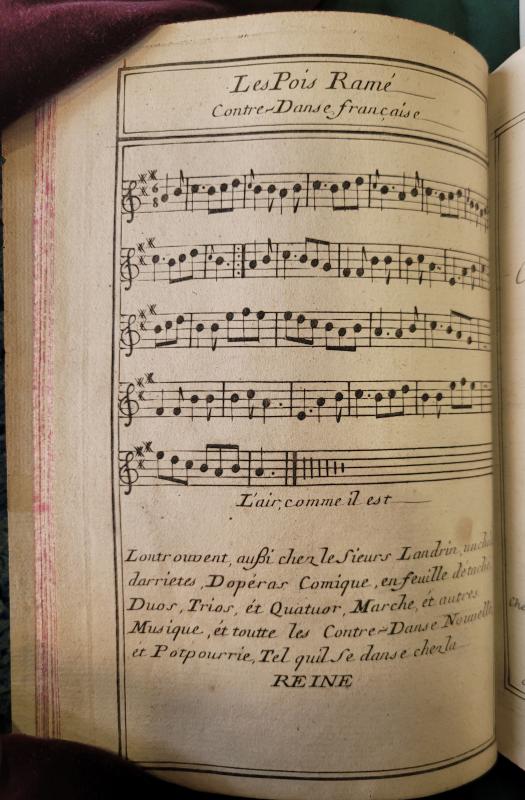 Les Pois Ramé
Contre-Danse française
6
8
L'air, comme il est
L'ontrouvent, außi chez le Sieurs Landrin, un
darrietes, Dopéras Comique, en feuille detaché
Duos, Trios, ét Quatuor, Marche, ét autres
Musique, ét toutte les Contre-Danse Nouvelle
et Potpourrie, Tel quil se danse chez la
REINE